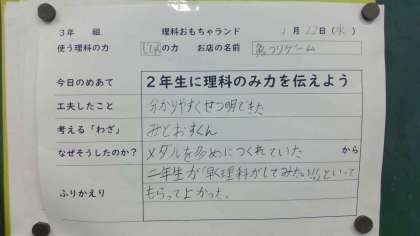 3年 組 理科おもちゃランド 1月22日(水)
使う理科の力 じしゃくの力 お店の名前 魚つりゲーム
今日のめあて 2年生に理科のみ力を伝えよう
工夫したこと 分かりやすくせつ明できた
考える「わざ」 みとおすくん
なぜそうしたのか? メダルを多めにつくれていた から
ふりかえり 二年生が「早く理科がしてみたい!!」といって
もらってよかった。